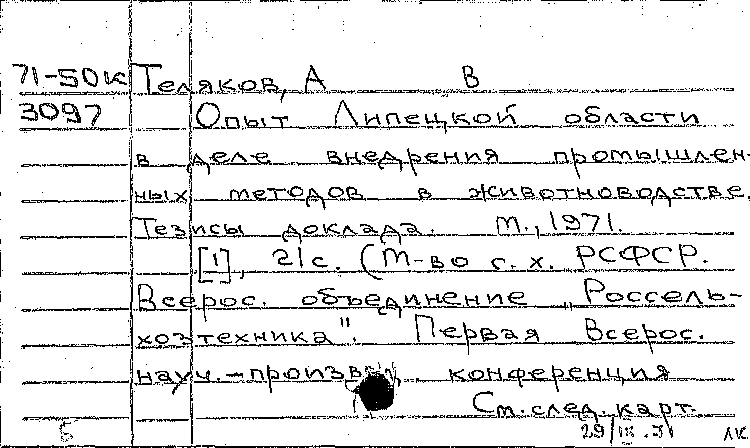 71-50к Теляков, А В
3097 Опыт Липецкой области
в деле внедрения промышлен-
ных методов в животноводстве.
Тезисы доклада. М., 1971.
[1], 21с. (М-во с. х. РСФСР.
Всерос. объединение „Россель-
хозтехника". Первая Всерос.
науч.-произв. конференция
См. след. карт.
5 29/IX.71 ЛК